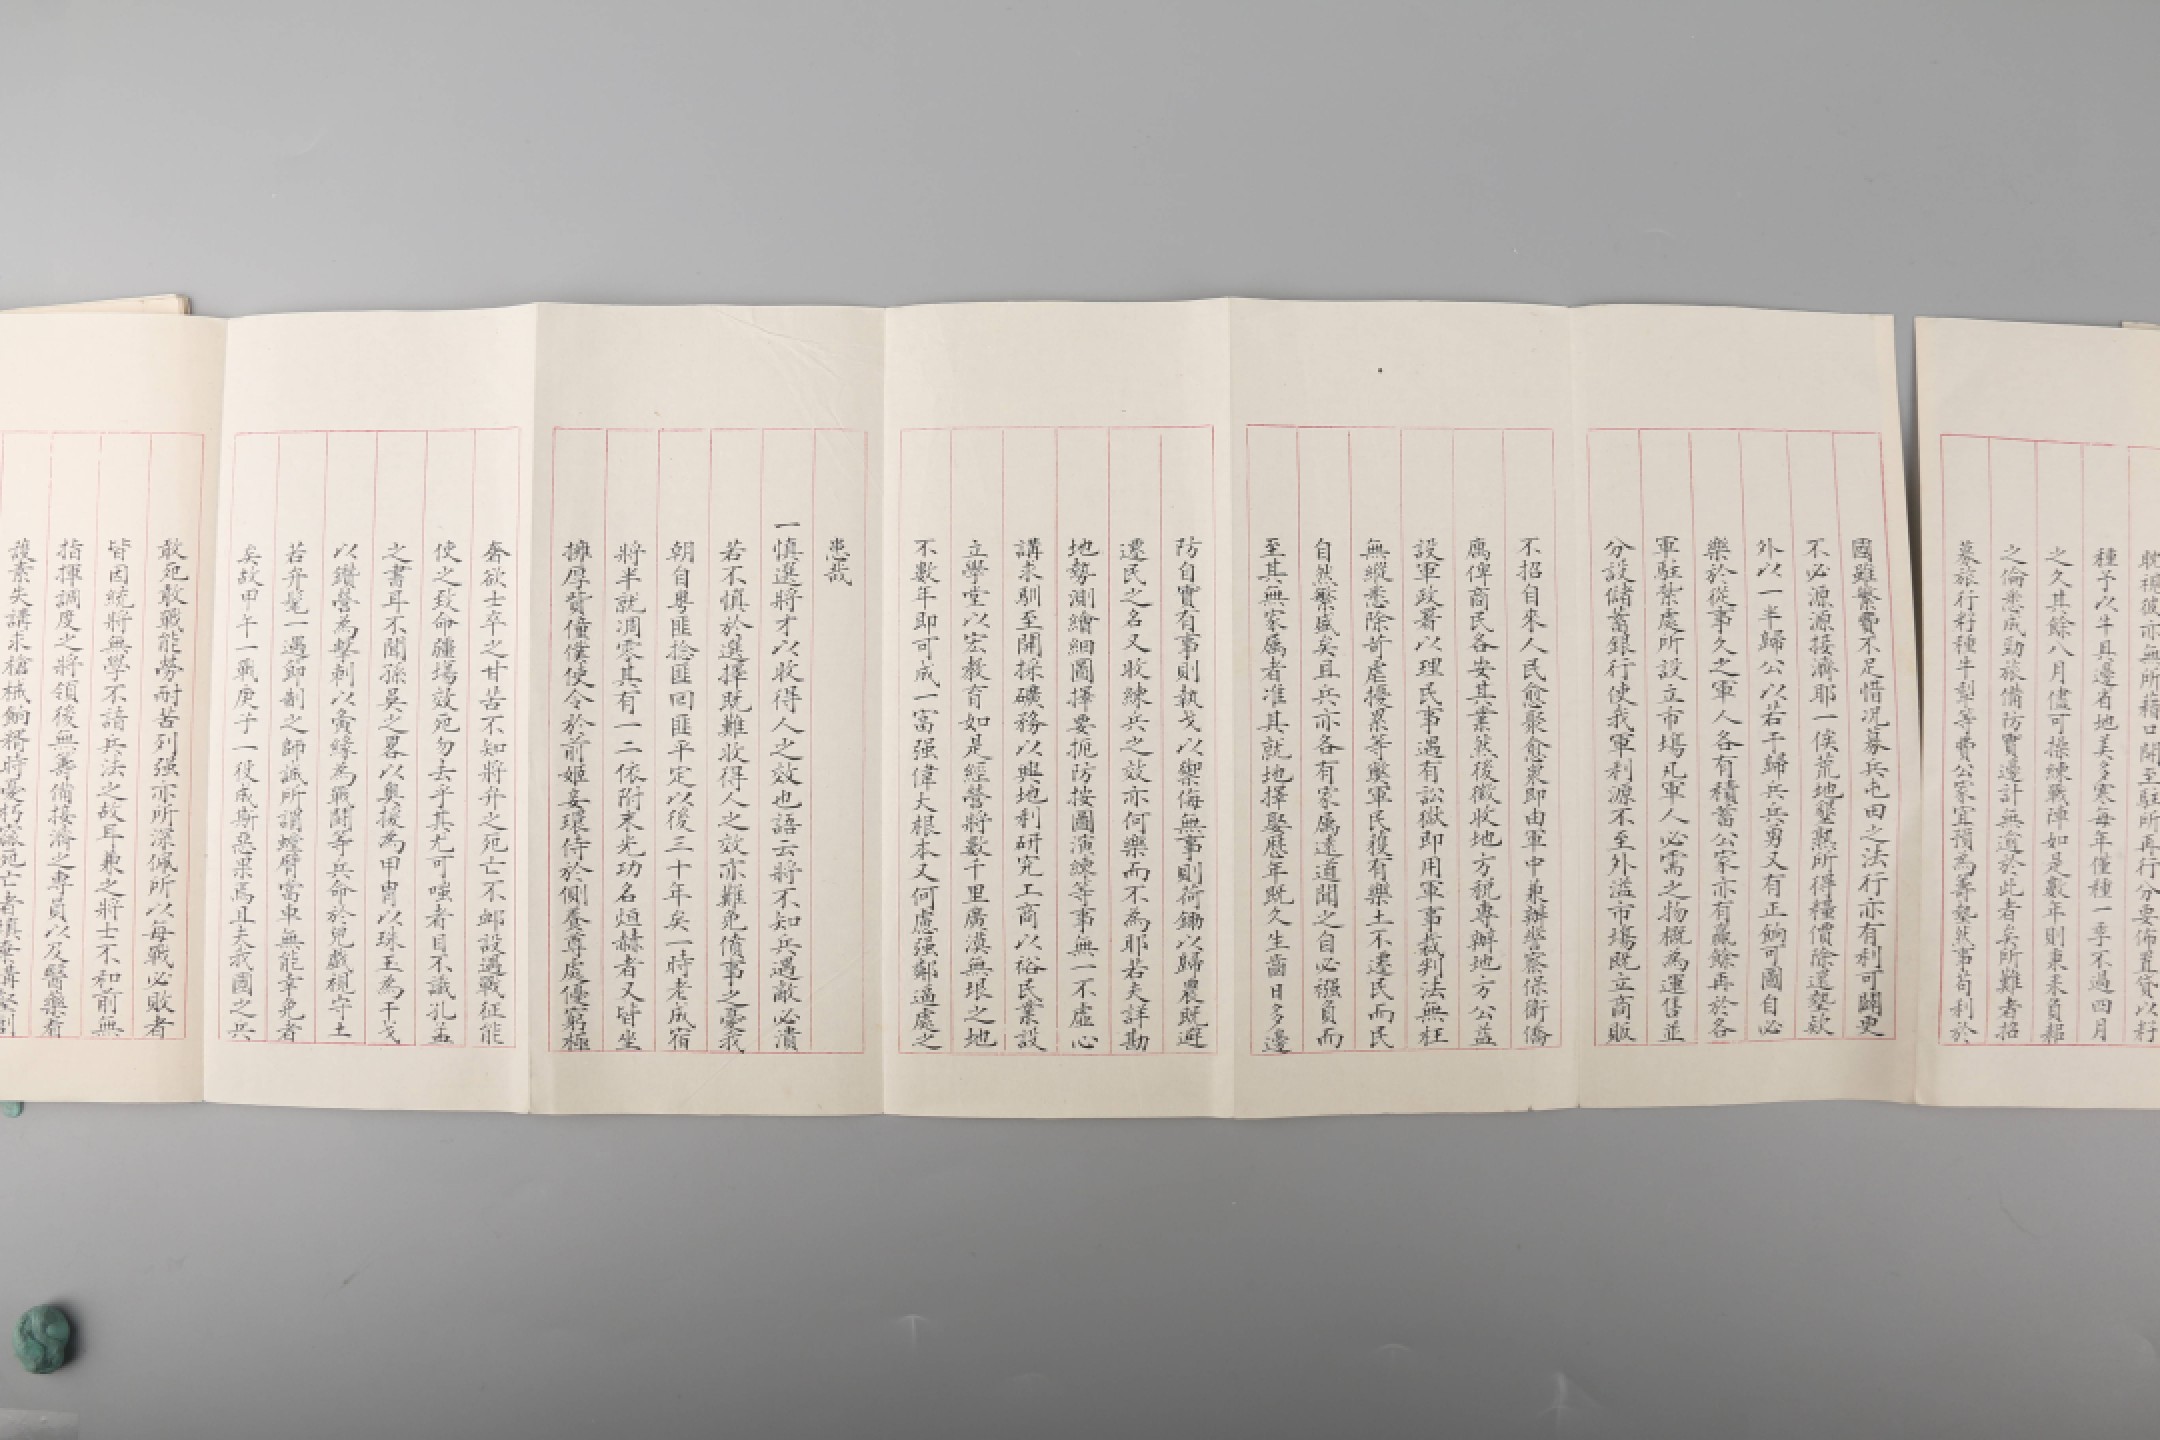 種子以牛具邊省地美多寒每年僅種一季不過四月
之久其餘八月儘可操練戰陣如是數年則東耒負耜
之倫悉成勁旅備防實邊計無逾於此者矣所難者招
募旅行籽種牛犁等費公家宜預為籌墊然事苟利於
國雖繁費不足惜況募兵屯田之法行亦有利可闢更
不必源源接濟耶一俟荒地墾熟所得糧價除還墊款
外以一半歸公以若干歸兵兵勇又有正餉可圖自必
樂於從事久之軍人各有積蓄公家亦有贏餘再於各
軍駐紮處所設立市場凡軍人必需之物概為運售並
分設儲蓄銀行使我軍利源不至外溢市場既立商販
不招自來人民愈聚愈衆即由軍中兼辦警察保衛僑
寓俾商民各安其業然後徵收地方稅專辦地方公益
設軍政署以理民事遇有訟獄即用軍事裁判法無枉
無縱悉除苛虐擾累等弊軍民獲有樂土不遷民而民
自然繁盛矣且兵亦各有家屬遠道聞之自必襁負而
至其無家屬者准其就地擇娶歷年既久生齒日多邊
防自實有事則執戈以禦侮無事則荷鋤以歸農既避
遷民之名又收練兵之效亦何樂而不為耶若夫詳勘
地勢測繪細圖擇要扼防按圖演練等事無一不虛心
講求馴至開採礦務以興地利研究工商以裕民業設
立學堂以宏教育如是經營將數千里廣漠無垠之地
不數年即可成一富强偉大根本又何慮强鄰逼處之
患哉
一慎選將才以收得人之效也語云將不知兵遇敵必潰
若不慎於選擇既難收得人之效亦難免僨事之憂我
朝自粵匪捻匪回匪平定以後三十年矣一時老成宿
將半就凋零其有一二依附末光功名烜赫者又皆坐
擁厚貲僮僕使令於前姬妾環侍於側養尊處優窮極
奢欲士卒之甘苦不知將弁之死亡不卹設遇戰征能
使之致命疆場效死勿去乎其尤可嗤者目不識孔孟
之書耳不聞孫吳之畧以奧援為甲冑以珠玉為干戈
以鑽營為擊刺以夤緣為戰鬬等兵命於兒戲視守土
若弁髦一遇節制之師誠所謂螳臂當車無能幸免者
矣故甲午一戰庚子一役成斯惡果焉且夫我國之兵
敢死敢戰能勞耐苦列强亦所深佩所以每戰必敗者
皆因統將無學不諳兵法之故耳兼之將士不和前無
指揮調度之將領後無籌備接濟之專員以及醫藥看
護素失講求槍械餉糈時憂朽窳死亡者